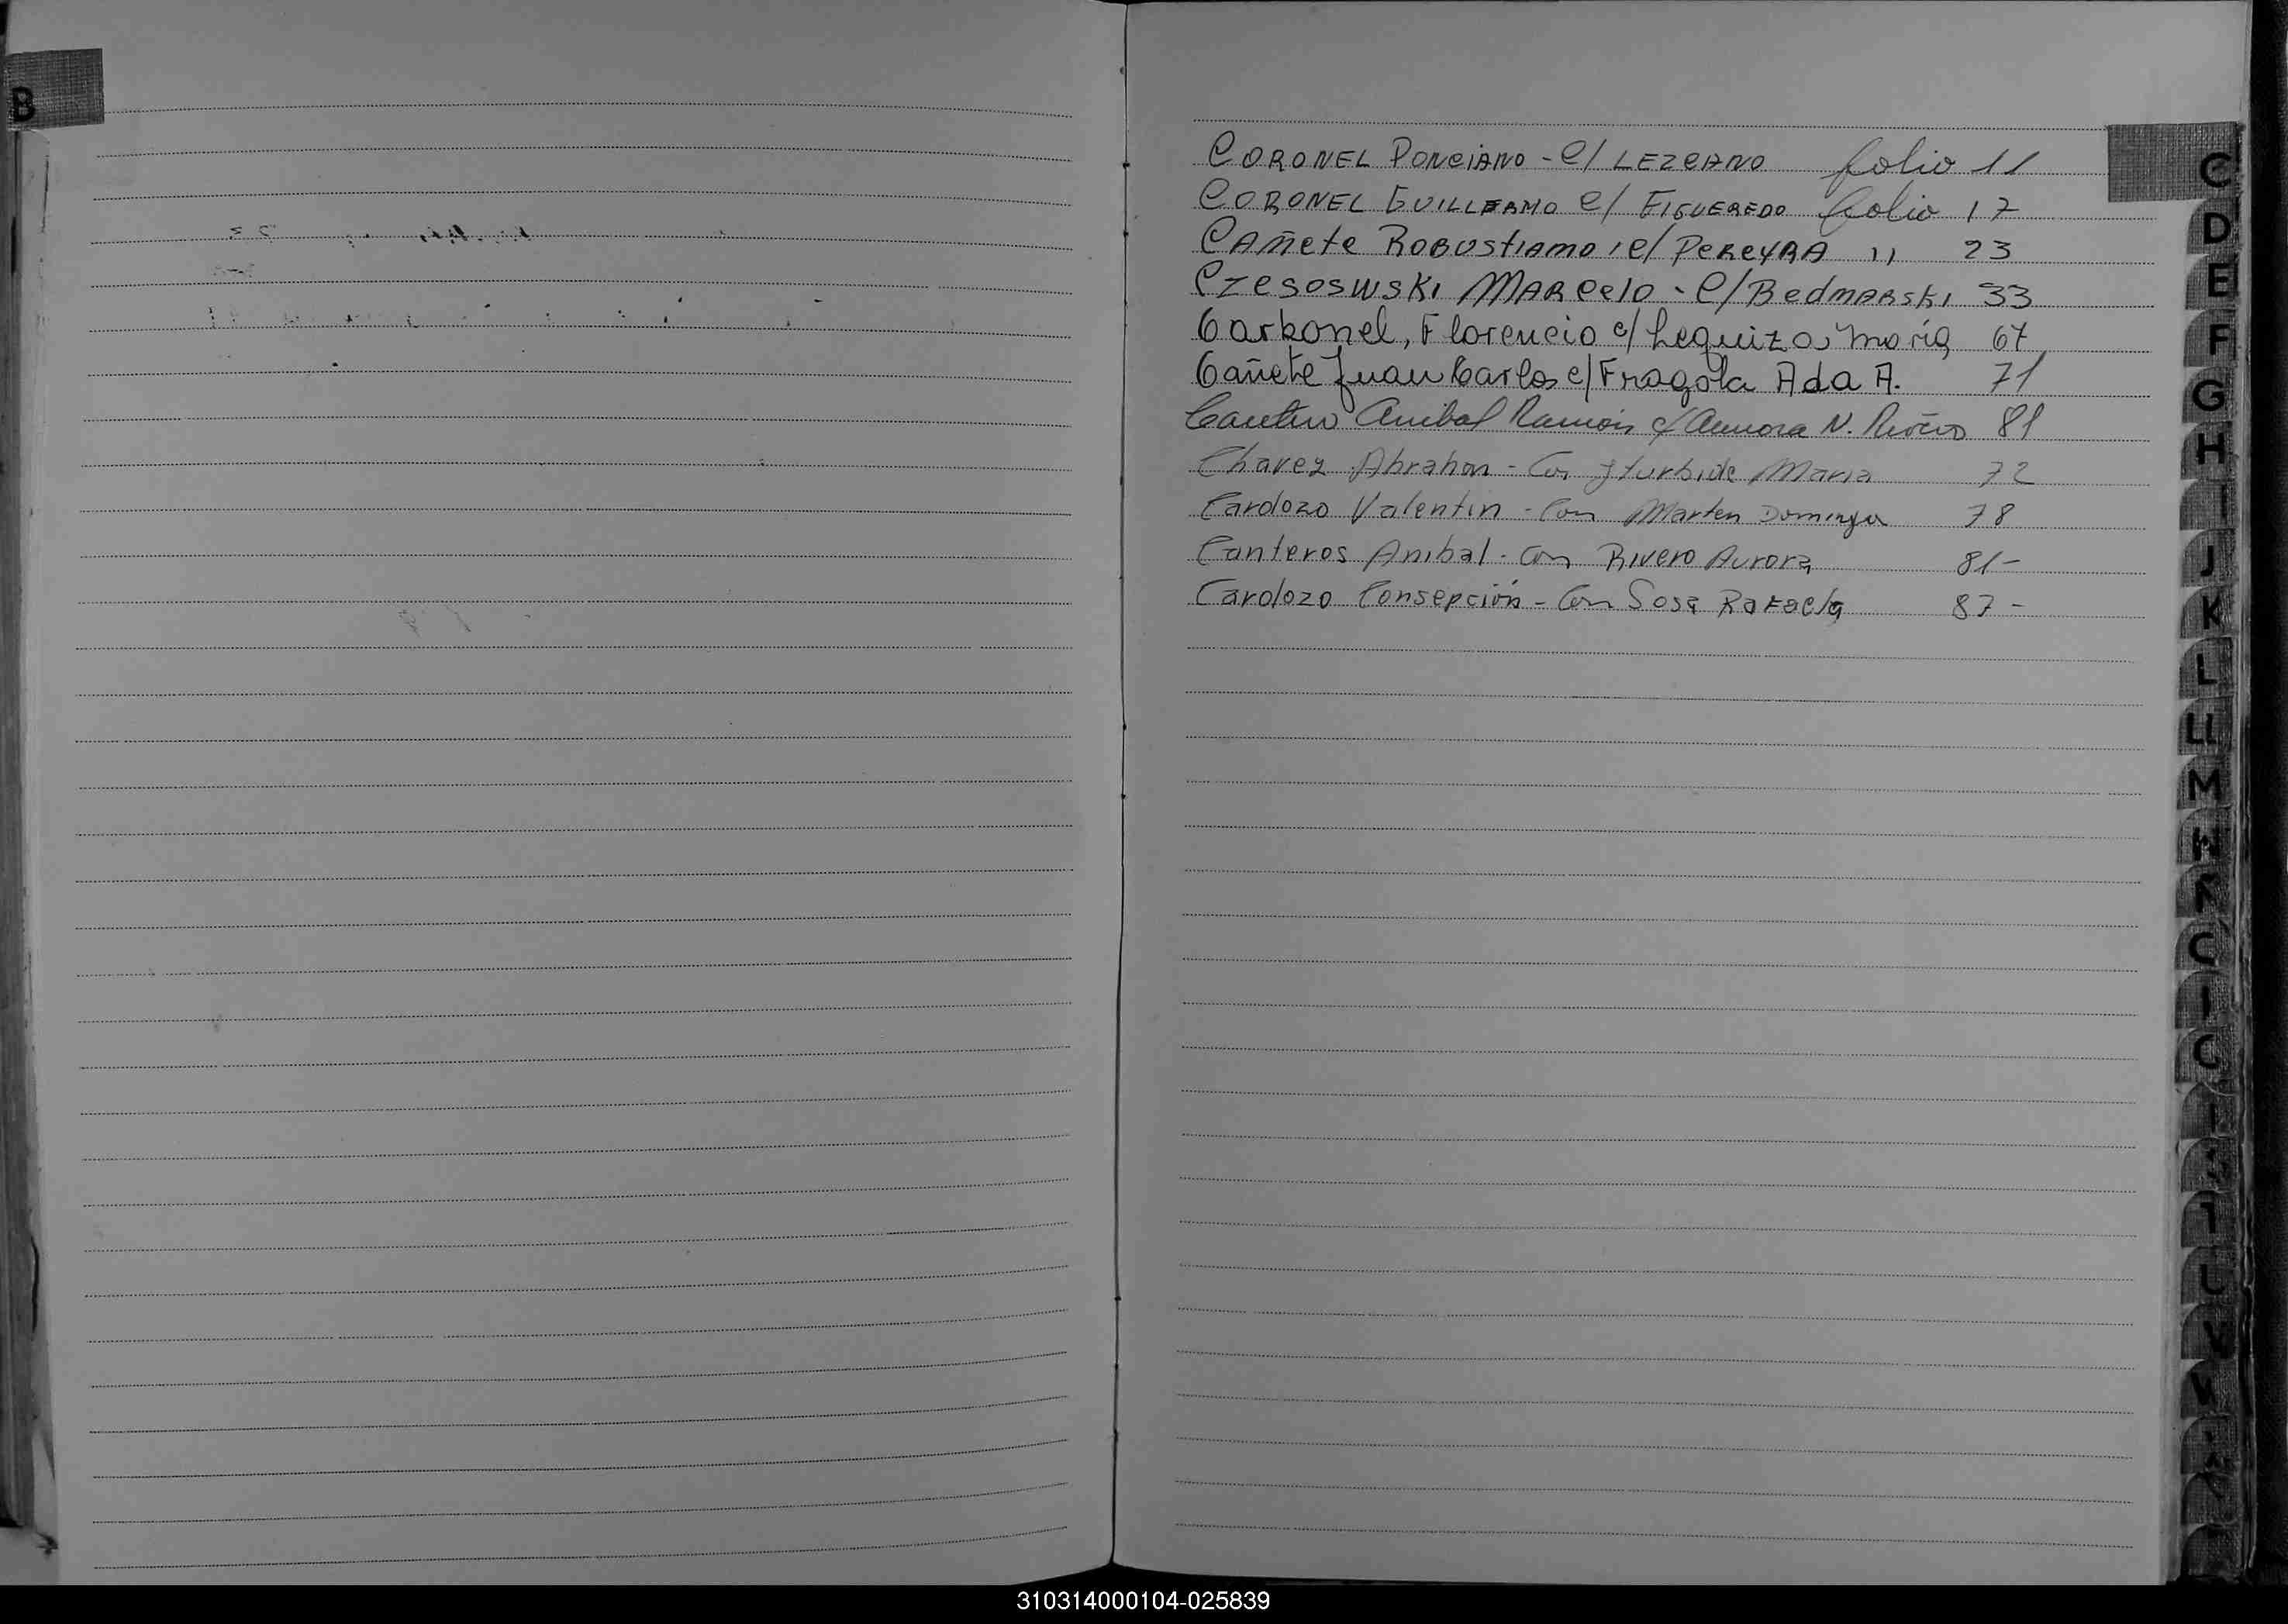 B
CORONEL PONCIANO - C/ LEZCANO folio 11
CORONEL GUILLERMO C/ FIGUEREDO folio 17
CAÑete ROBUStIAMO, C/ PeReyRA " 23
CZESOSWSKI MARCelo - C/ BedMARSKI 33
Carbonel, Florencio c/ Leguiza, María 67
Cañete Juan Carlos c/ Fragola Ada A. 71
Anibal Ramón c/ Aurora N. 81
Chavez Abrahan - Con Iturbide Maria 72
Cardozo Valentin - Con Marten Dominga 78
Canteros Anibal - Con Rivero Aurora 81-
Cardozo Consepción - Con Sosa Rafaela 87-
C
D
E
F
G
H
I
J
K
L
LL
M
310314000104-025839